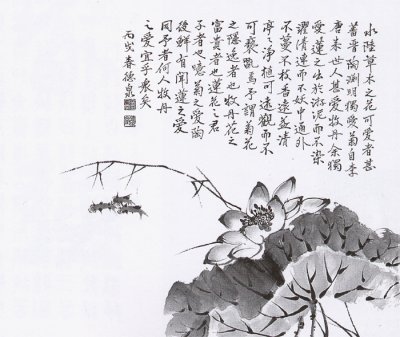 水陸草木之花可愛者甚
蕃晉陶淵明獨愛菊自李
唐来世人甚愛牧丹余獨
愛蓮之出於淤泥而不染
濯清漣而不妖中通外
不蔓不枝香遠益清
亭々淨植可遠觀而不
可褻翫焉予謂菊花
之隱逸者也牧丹花之
富貴者也蓮花之君
子者也噫菊之愛陶
後鮮有聞蓮之愛
同予者何人牧丹
之愛宜乎衆矣
丙戌春德泉